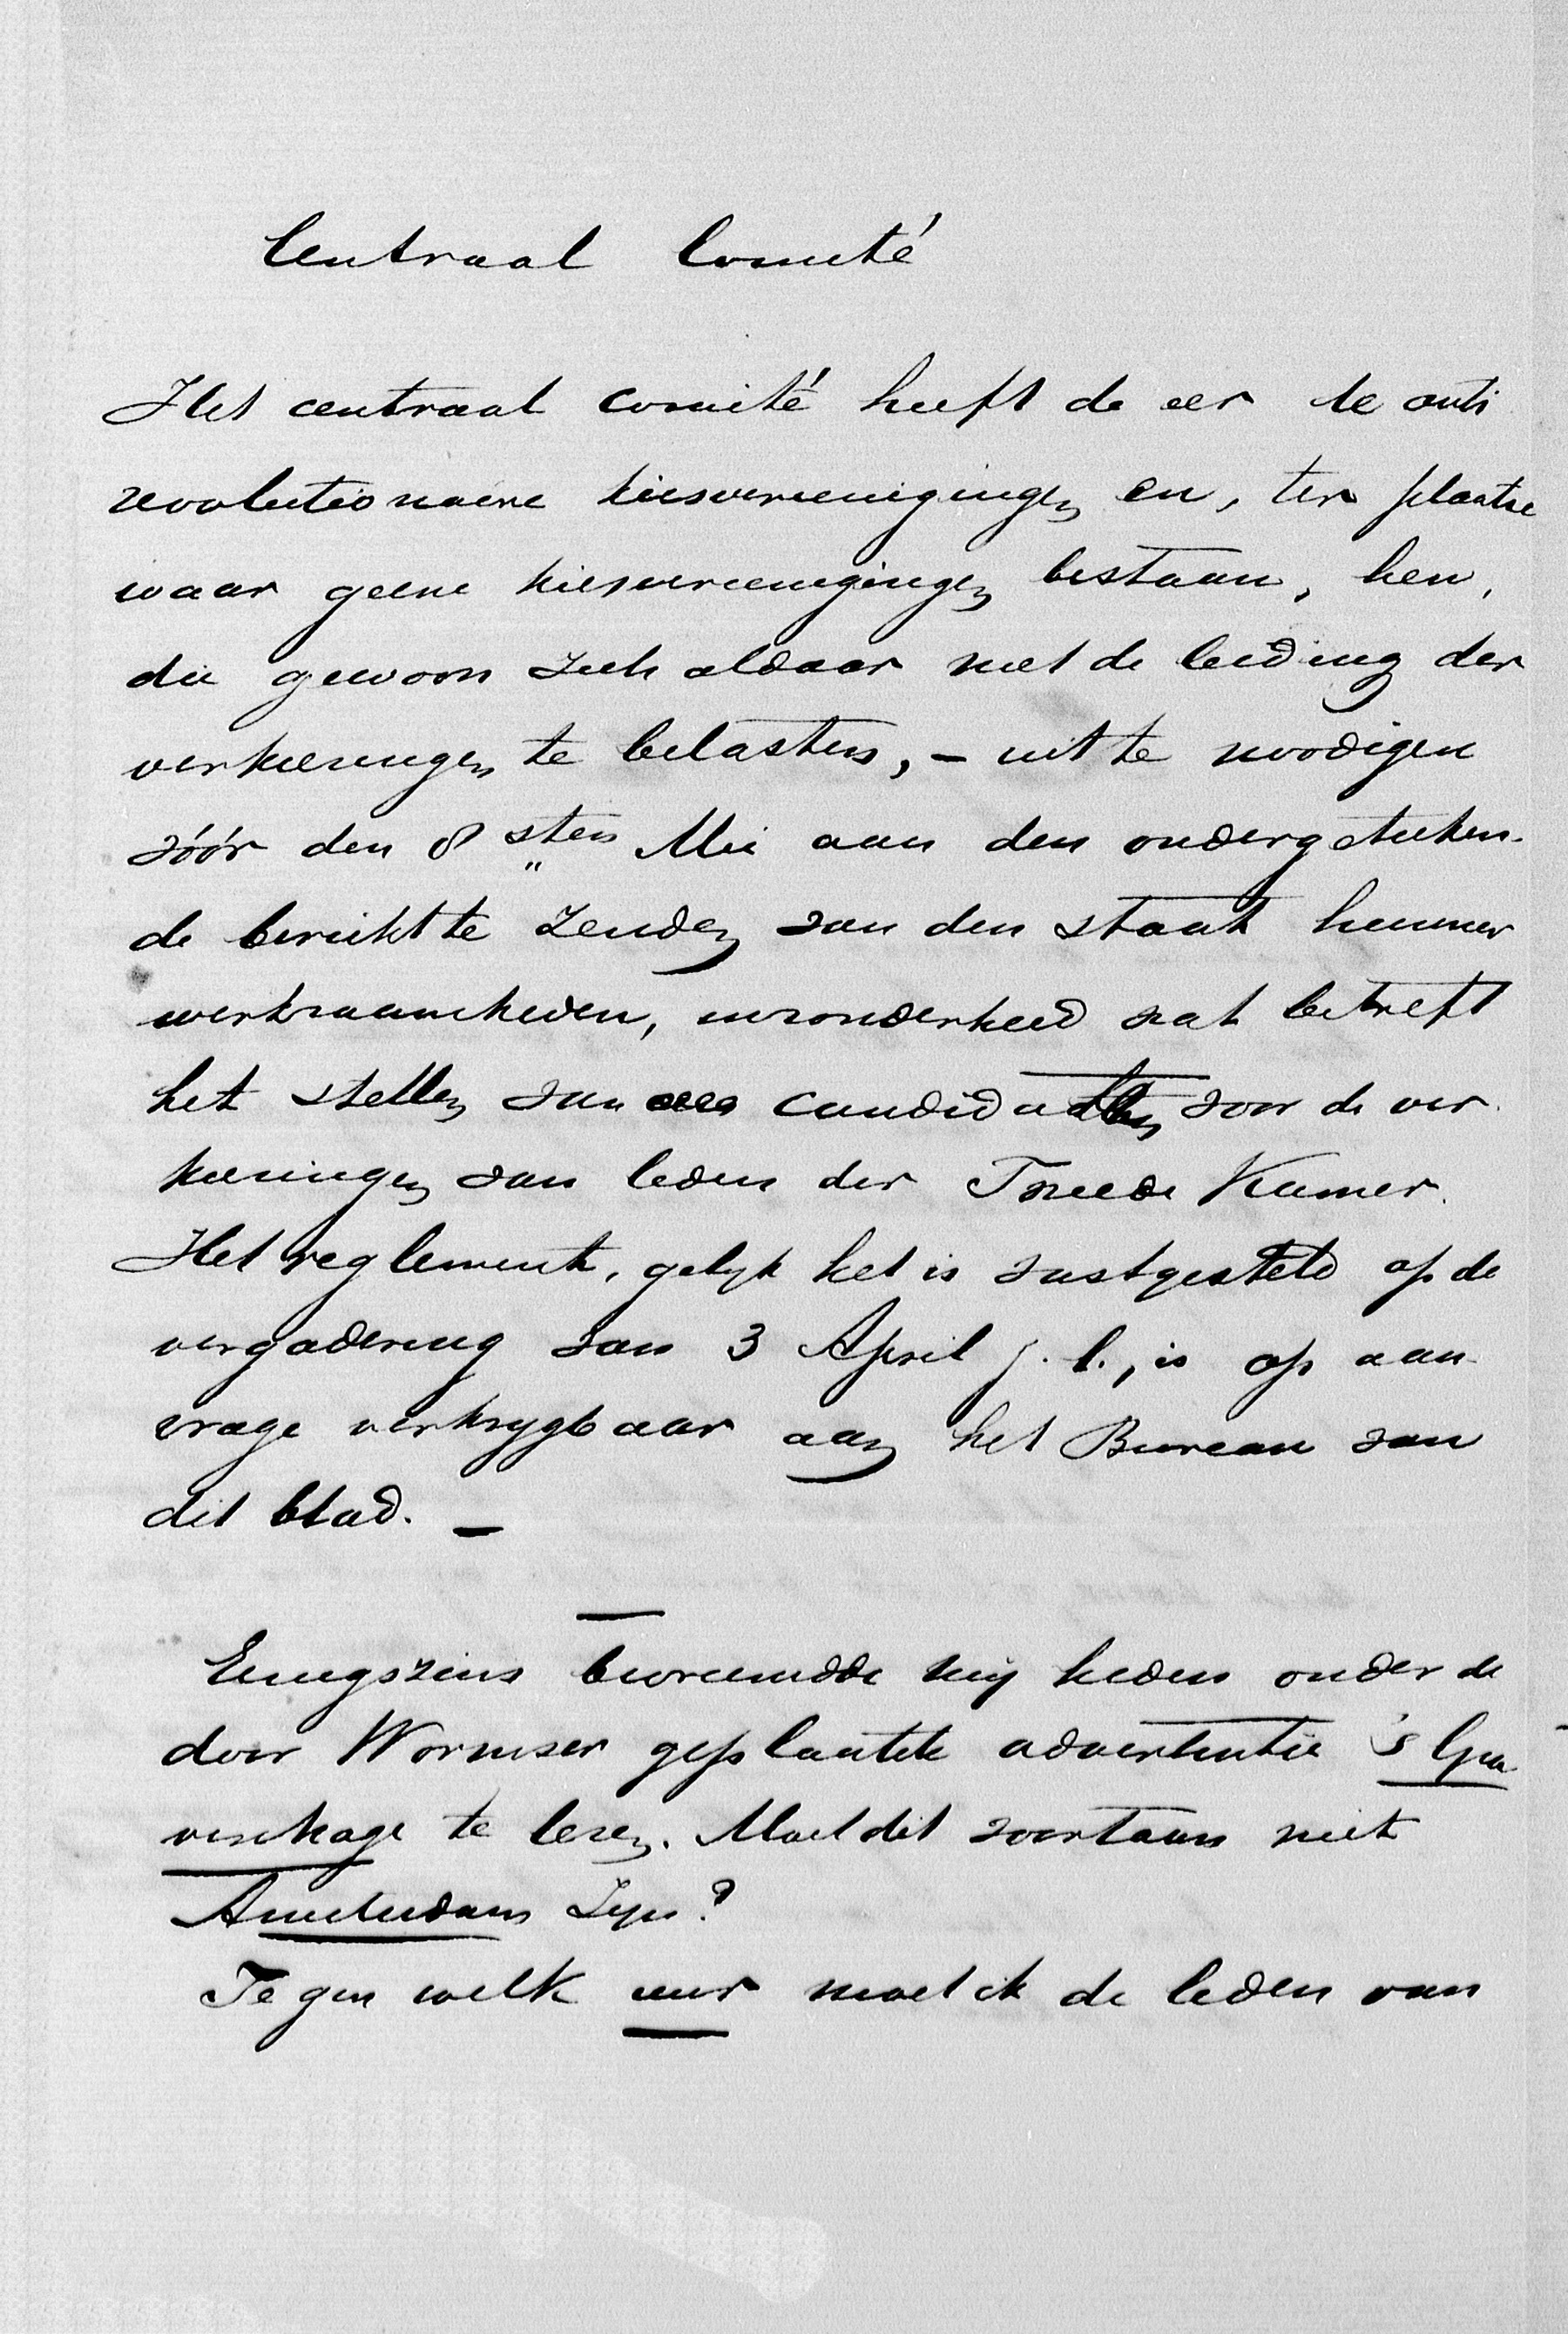 Centraal Comité
Het centraal comité heeft de eer de anti
revolutionaire kiesvereenigingen en, ter plaatse
waar geene kiesvereenigingen bestaan, hen,
die gewoon zich aldaar met de leiding der
verkiezingen te belasten, – uit te noodigen
vóór den 8sten Mei aan den ondergeteeken-
de bericht te zenden van den staat hunner
werkzaamheden, inzonderheid wat betreft
het stellen van candidaten voor de ver-
kiezingen van leden der Tweede Kamer.
Het reglement, gelijk het is vastgesteld op de
vergadering van 3 April j.l., is op aan-
vrage verkrijgbaar aan het Bureau van
dit blad. –
Eenigszins bevreemdde mij heden onder de
door Wormser geplaatste advertentie 's Gra
venhage te lezen. Moet dit voortaan niet
Amsterdam zijn?
Tegen welk uur moet ik de leden van